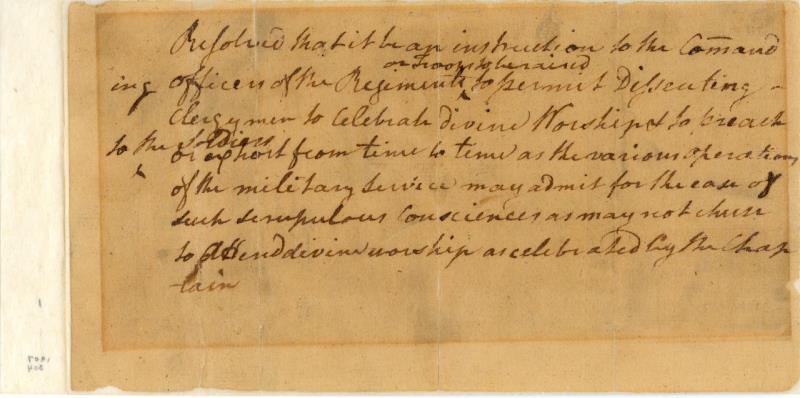 Resolved that it be an instruction to the Command
or Troops to be raised
ing officers of the Regiments to permit Dissenting
Clergymen to Celebrate divine Worship & to preach
to the Soldiers
or exhort from time to time as the various operations
of the military Service may admit for the ease of
such scrupulous Consciences as may not chuse
to attend divine worship as celebrated by the Chap
-lain